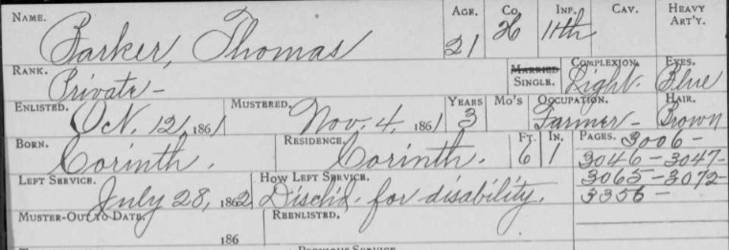 NAME. Barker, Thomas AGE. 21 Co. H INF. 11th CAV. HEAVY ART'Y.
RANK. Private - MARRIED SINGLE. COMPLEXION. Light. EYES. Blue
ENLISTED. Oct. 12, 1861 MUSTERED. Nov. 4, 1861 YEARS 3 MO'S OCCUPATION. Farmer - HAIR. Brown
BORN. Corinth. RESIDENCE. Corinth. FT. 6 IN. 1 PAGES. 3006-
3046-3047-
LEFT SERVICE. July 28, 1862 HOW LEFT SERVICE. Disch'd. for disability. 3065-3072-
3356-
MUSTER-OUT TO DATE. 186 REENLISTED.